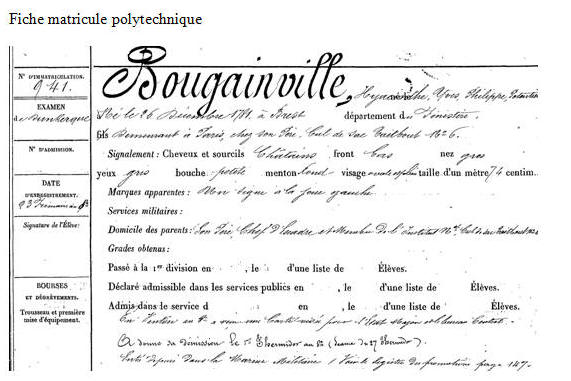 Fiche matricule polytechnique
N° D'IMMATRICULATION.
941.
EXAMEN
de Dunkerque
N° D'ADMISSION.
DATE
D'ENREGISTREMENT.
23
Signature de l'Élève:
BOURSES
ET DÉGRÈVEMENTS.
Trousseau et première
mise d'équipement.
Bougainville, Hyacinthe, Yves, Philippe, Potentien
Né le 26 Décembre 1781 à Brest département du Finistère.
fils demeurant à Paris, chez son Père. Cul de sac Taitbout N° 6.
Signalement : Cheveux et sourcils Châtains front bas nez gros
yeux gris bouche petite menton rond visage taille d'un mètre 74 centim.
Marques apparentes : Un signe à la joue gauche
Services militaires :
Domicile des parents : Son Père, Chef d'Escadre et Membre de l'Institut
Grades obtenus :
Passé à la 1re division en , le d'une liste de Élèves.
Déclaré admissible dans les services publics en , le d'une liste de Élèves.
Admis dans le service d , le d'une liste de Élèves.
En Ventôse an
A donné sa démission le Thermidor an 27 Thermidor
Entré depuis dans la Marine Militaire / Voir le registre des promotions page 147.